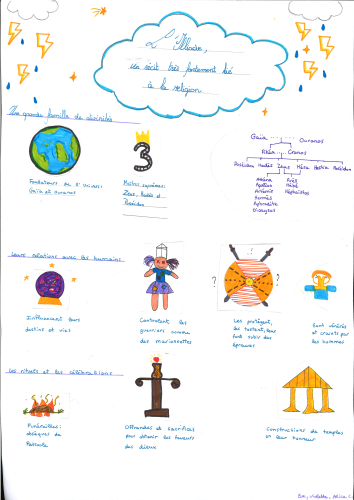 L'Iliade,
un récit très fortement lié
à la religion
Une grande famille de divinités
Fondateurs de l'Univers:
Gaïa et Ouranos
3
Maîtres suprêmes:
Zeus, Hadès et
Poséidon
Gaïa Ouranos
Rhéa Cronos
Poséidon Hadès Zeus Héra Hestia
Athéna
Apollon
Artémis
Hermès
Aphrodite
Dionysos
Arès
Hébé
Héphaïstos
Leurs relations avec les humains
Influencent leurs
destins et vies
Contrôlent les
guerriers comme
des marionnettes
? ?
Les protègent,
les testent, leur
font subir des
épreuves
Sont vénérés
et craints par
les hommes
Les rituels et les célébrations
Funérailles:
obsèques de
Patrocle
Offrandes et sacrifices
pour obtenir les faveurs
des dieux
Constructions de temples
en leur honneur